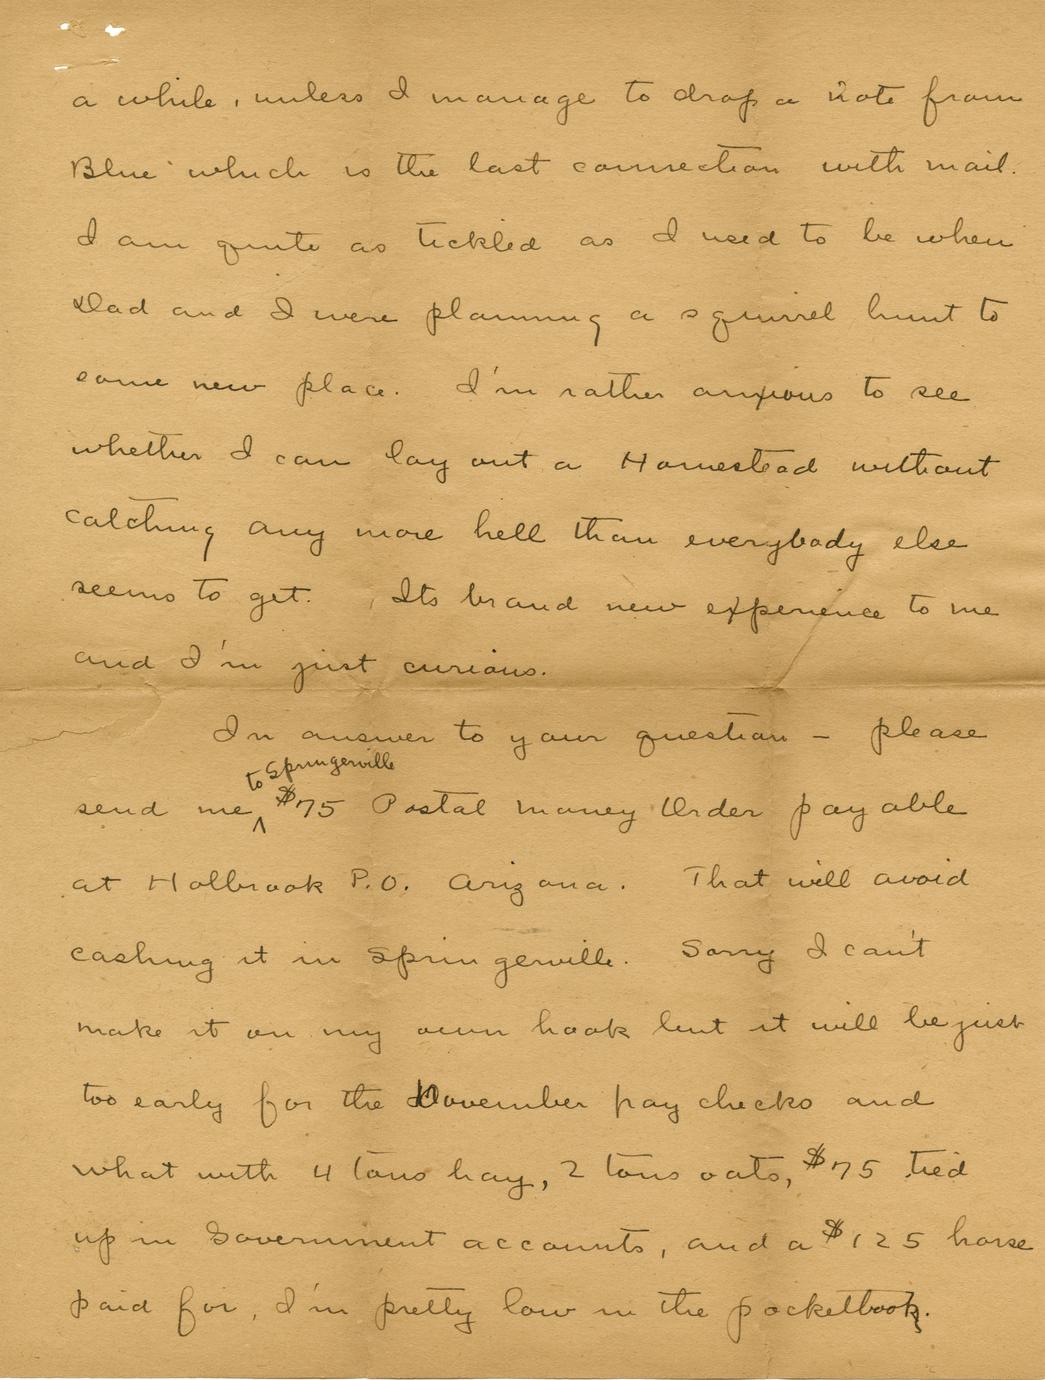 a while, unless I manage to drop a note from
Blue which is the last connection with mail.
I am quite as tickled as I used to be when
Dad and I were planning a squirrel hunt to
some new place. I'm rather anxious to see
whether I can lay out a Homestead without
catching any more hell than everybody else
seems to get. Its brand new experience to me
and I'm just curious.
In answer to your question – please
to Springerville
send me, ^ $75 Postal money Order payable
at Holbrook P.O. Arizona. That will avoid
cashing it in Springerville. Sorry I can't
make it on my own hook but it will be just
too early for the November pay checks and
what with 4 tons hay, 2 tons oats, $75 tied
up in Government accounts, and a $125 horse
paid for, I'm pretty low in the pocketbook.